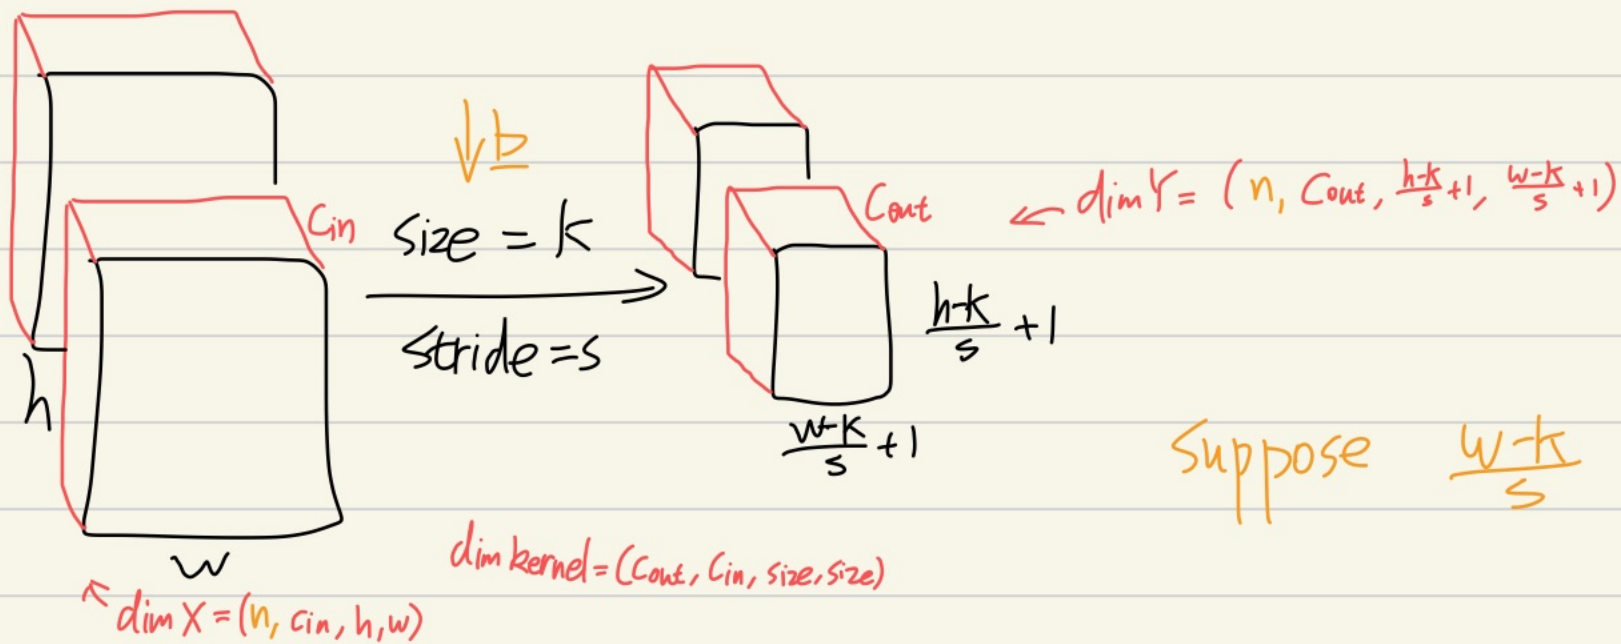 Cin
↓ b
size = k
stride = s
h
w
dim X = (n, Cin, h, w)
dim kernel = (Cout, Cin, size, size)
Cout
← dim Y = (n, Cout, h-k/s +1, w-k/s +1)
h-k/s +1
w-k/s +1
Suppose w-k/s